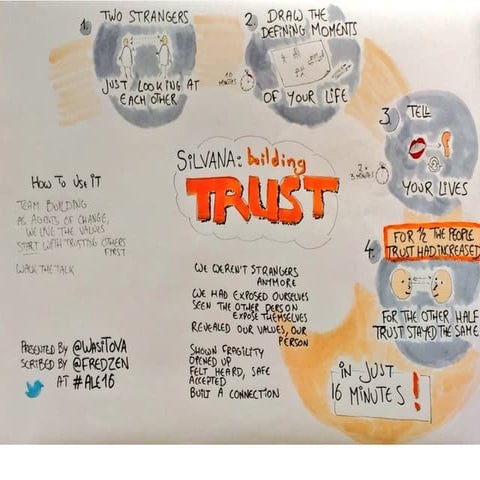 1.
TWO STRANGERS
JUST LOOKING AT
EACH OTHER
2.
DRAW THE
DEFINING MOMENTS
10
MINUTES
OF YOUR LIFE
3.
TELL
2x
3 MINUTES
YOUR LIVES
SILVANA: building
TRUST
4.
FOR 1/2 THE PEOPLE
TRUST HAD INCREASED
FOR THE OTHER HALF
TRUST STAYED THE SAME
IN JUST
16 MINUTES!
HOW TO USE IT
TEAM BUILDING
AS AGENTS OF CHANGE,
WE LIVE THE VALUES
START WITH TRUSTING OTHERS
FIRST
WALK THE TALK
WE WEREN'T STRANGERS
ANYMORE
WE HAD EXPOSED OURSELVES
SEEN THE OTHER PERSON
EXPOSE THEMSELVES
REVEALED OUR VALUES, OUR
PERSON
SHOWN FRAGILITY
OPENED UP
FELT HEARD, SAFE
ACCEPTED
BUILT A CONNECTION
PRESENTED BY @WASITOVA
SCRIBED BY @FREDZEN
AT #ALE16